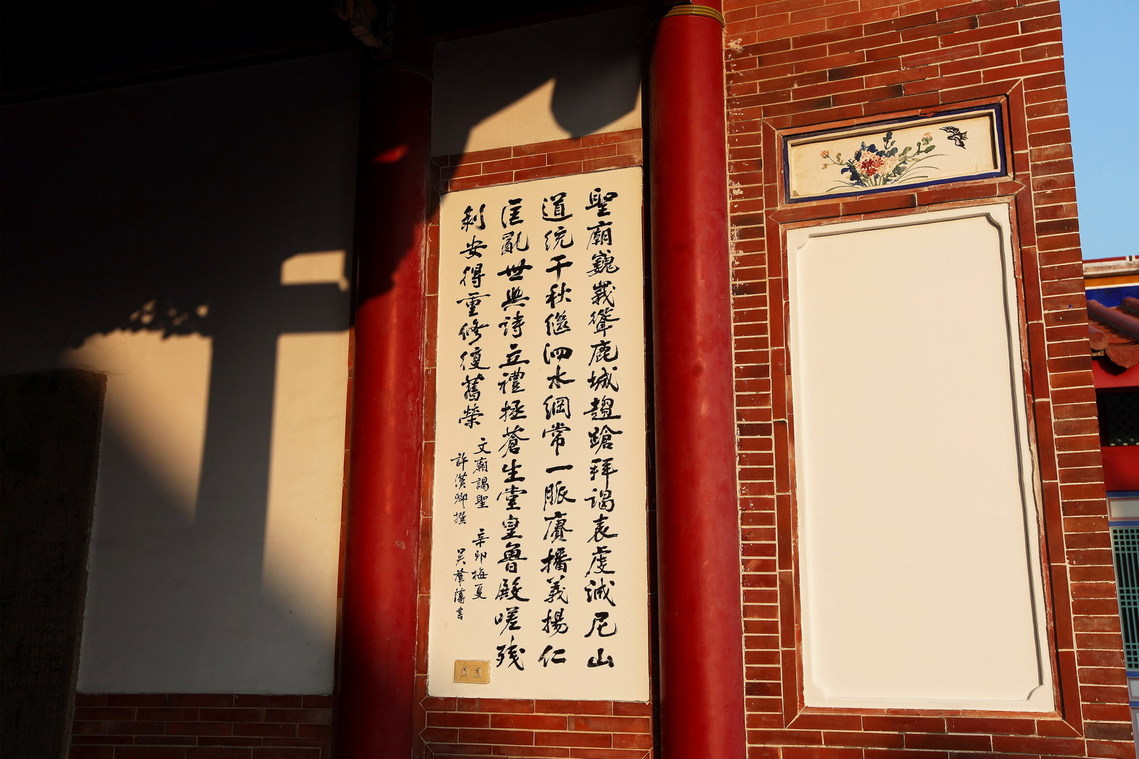 聖廟巍峩聳鹿城趨蹌拜謁表虔誠尼山
道統千秋繼泗水綱常一脈賡播義揚仁
匡亂世興詩立禮拯蒼生堂皇魯殿嗟殘
剝安得重修復舊榮
文廟謁聖 辛卯梅夏
許漢卿撰 吳書